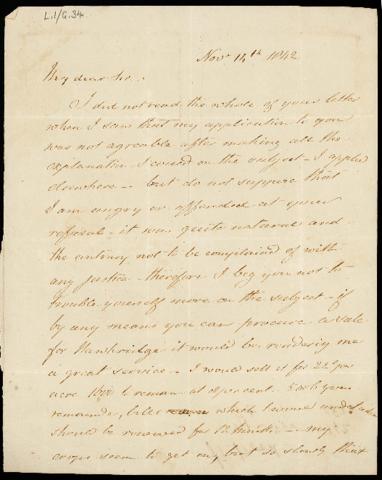 L.1/G.34
Novr 14th 1842
My dear Sir,
I did not read the whole of your letter
when I saw that my application to you
was not agreeable after making all the
explanation I could on the subject - I applied
elsewhere - but do not suppose that
I am angry or offended at your
refusal - it was quite natural and
the not to be complained of with
any justice - therefore I beg you not to
trouble yourself more on the subject - if
by any means you can procure a sale
for it would be rendering me
a great service - I would sell it for 22£ per
acre to remain at per cent.
remainder, bills which
should be renewed for 12 months - my
crops seem to get on, but so slowly that